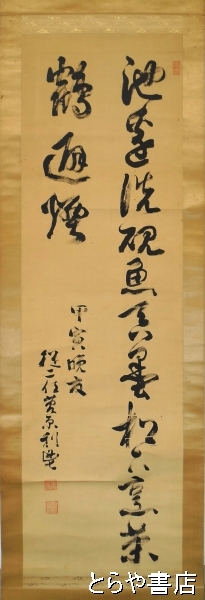 池邊洗硯魚呑墨松下烹茶
鶴避煙
甲寅晩夏
從二位菅原利鬯
とらや書店